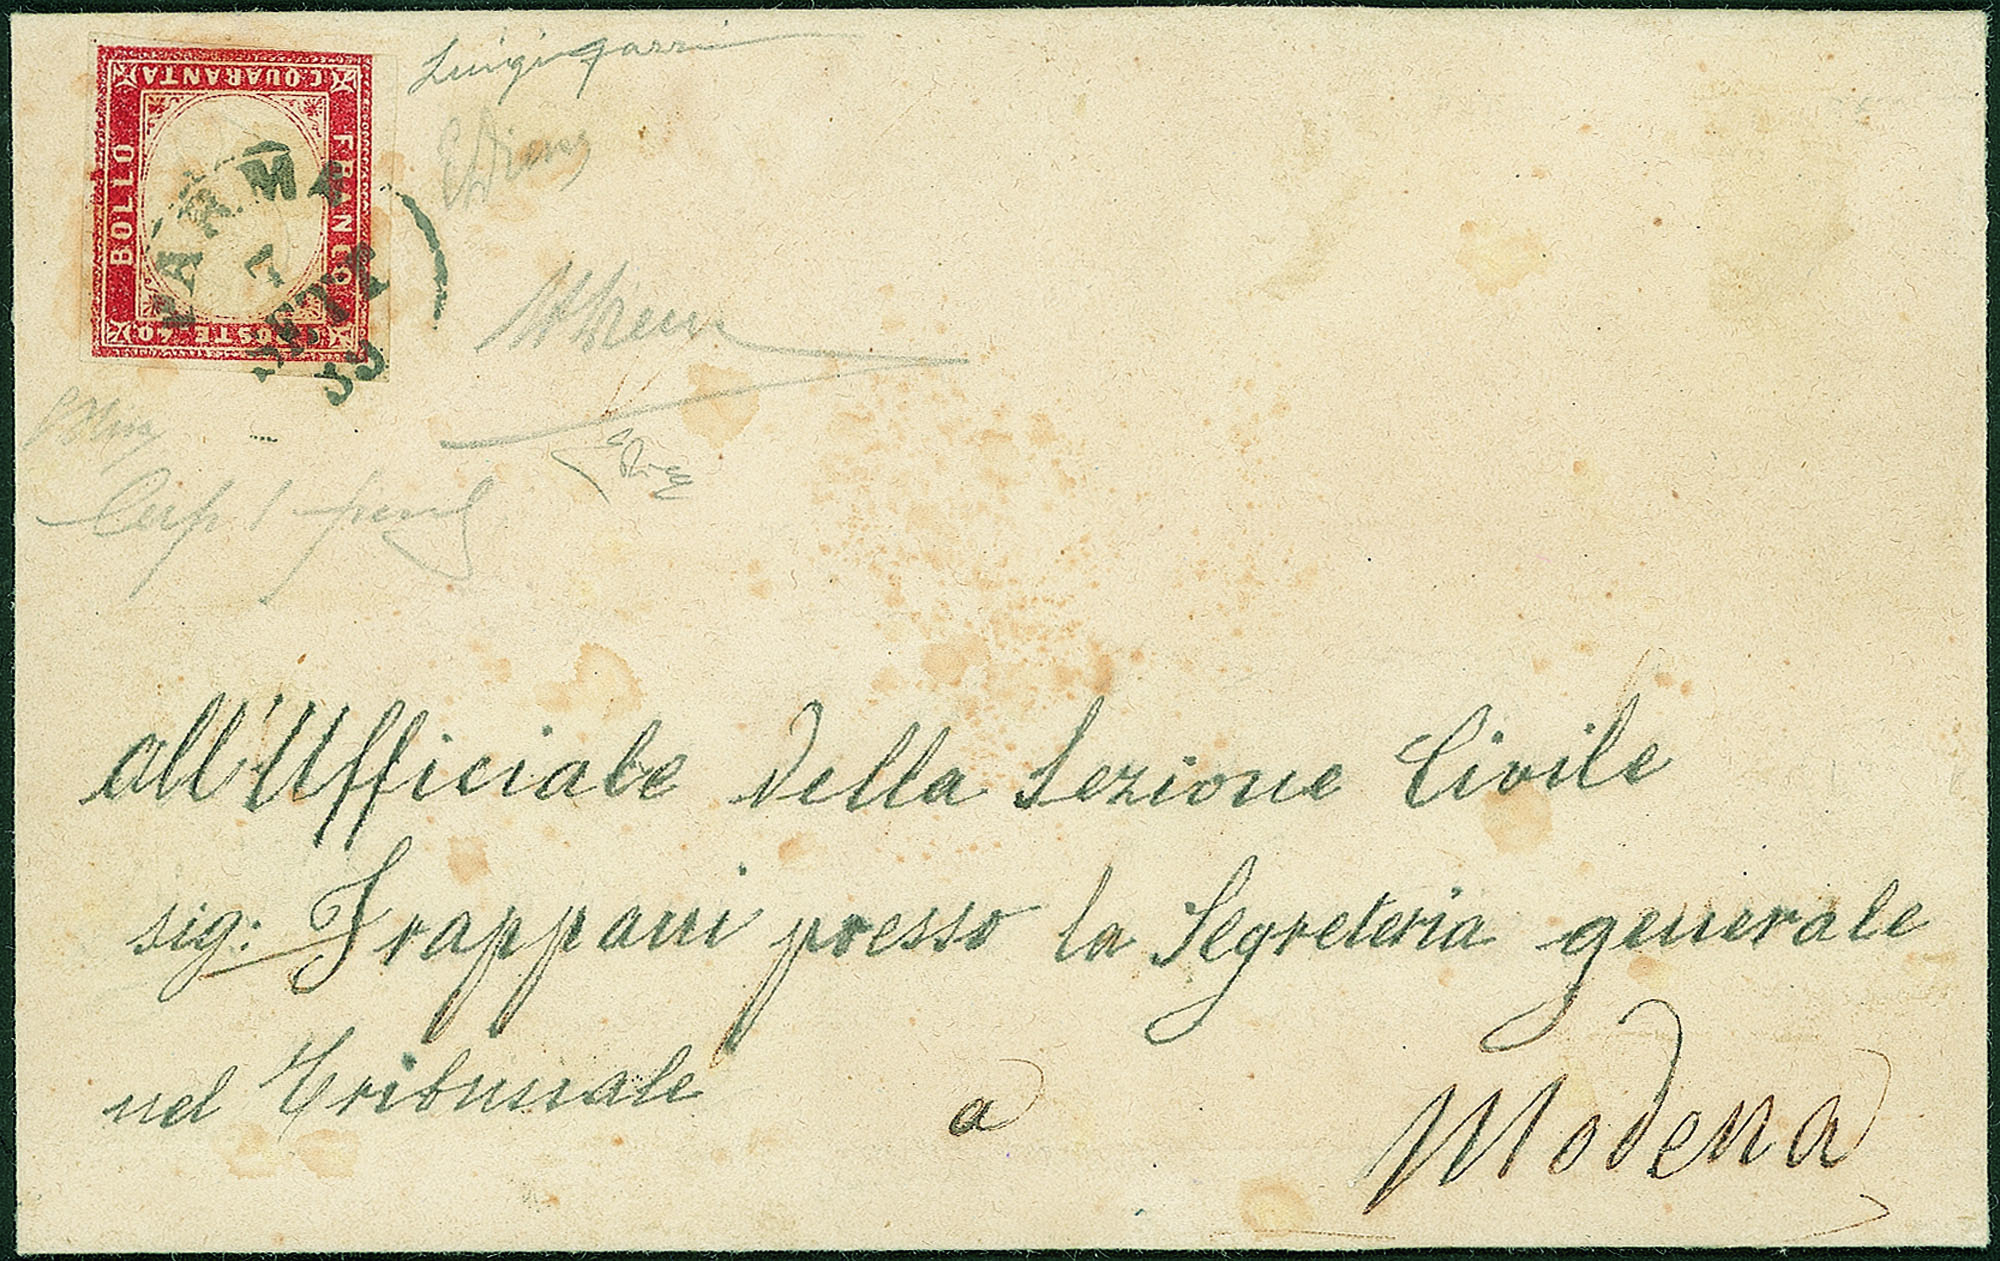 C. QUARANTA
BOLLO
FRANCO
C. POSTE 40
PARMA
7
SETT
59
all'Ufficiale della Sezione Civile
sig: Frappani presso la Segreteria generale
nel Tribunale a Modena